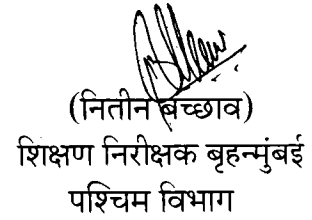 (नितीन बच्छाव)
शिक्षण निरीक्षक बृहन्मुंबई
पश्चिम विभाग